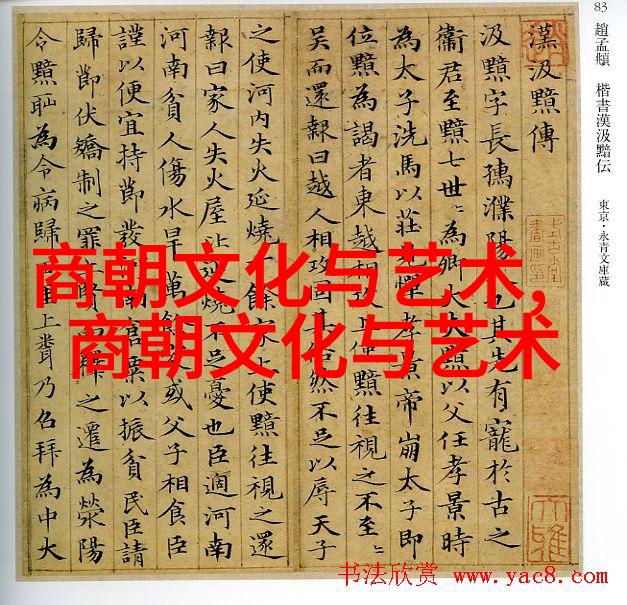 83 趙孟頫 楷書漢汲黯伝 東京・永青文庫蔵
漢汲黯傳
汲黯字長孺濮陽也其先有寵於古之
衞君至黯七世〻為卿大夫黯以父任孝景時
為太子洗馬以莊見憚孝景帝崩太子即
位黯為謁者東越相攻上使黯往視之不至〻
吳而還報曰越人相攻固然不足以辱天子
之使河內失火延燒餘家上使黯往視之還
報曰家人失火屋比延燒不足憂也臣適河南
河南貧人傷水旱萬餘家或父子相食臣
謹以便宜持節發河南倉粟以振貧民臣請
歸節伏矯制之罪上賢而釋之遷為滎陽
令黯恥為令病歸里上聞乃召拜為中大
商朝文化与艺术,
商朝文化与艺术
书法欣赏 www.yac8.com